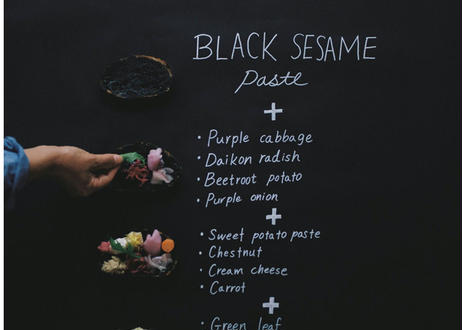 BLACK SESAME
Paste
+
• Purple cabbage
• Daikon radish
• Beetroot potato
• Purple onion
+
• Sweet potato paste
• Chestnut
• Cream cheese
• Carrot
+
• Green leaf